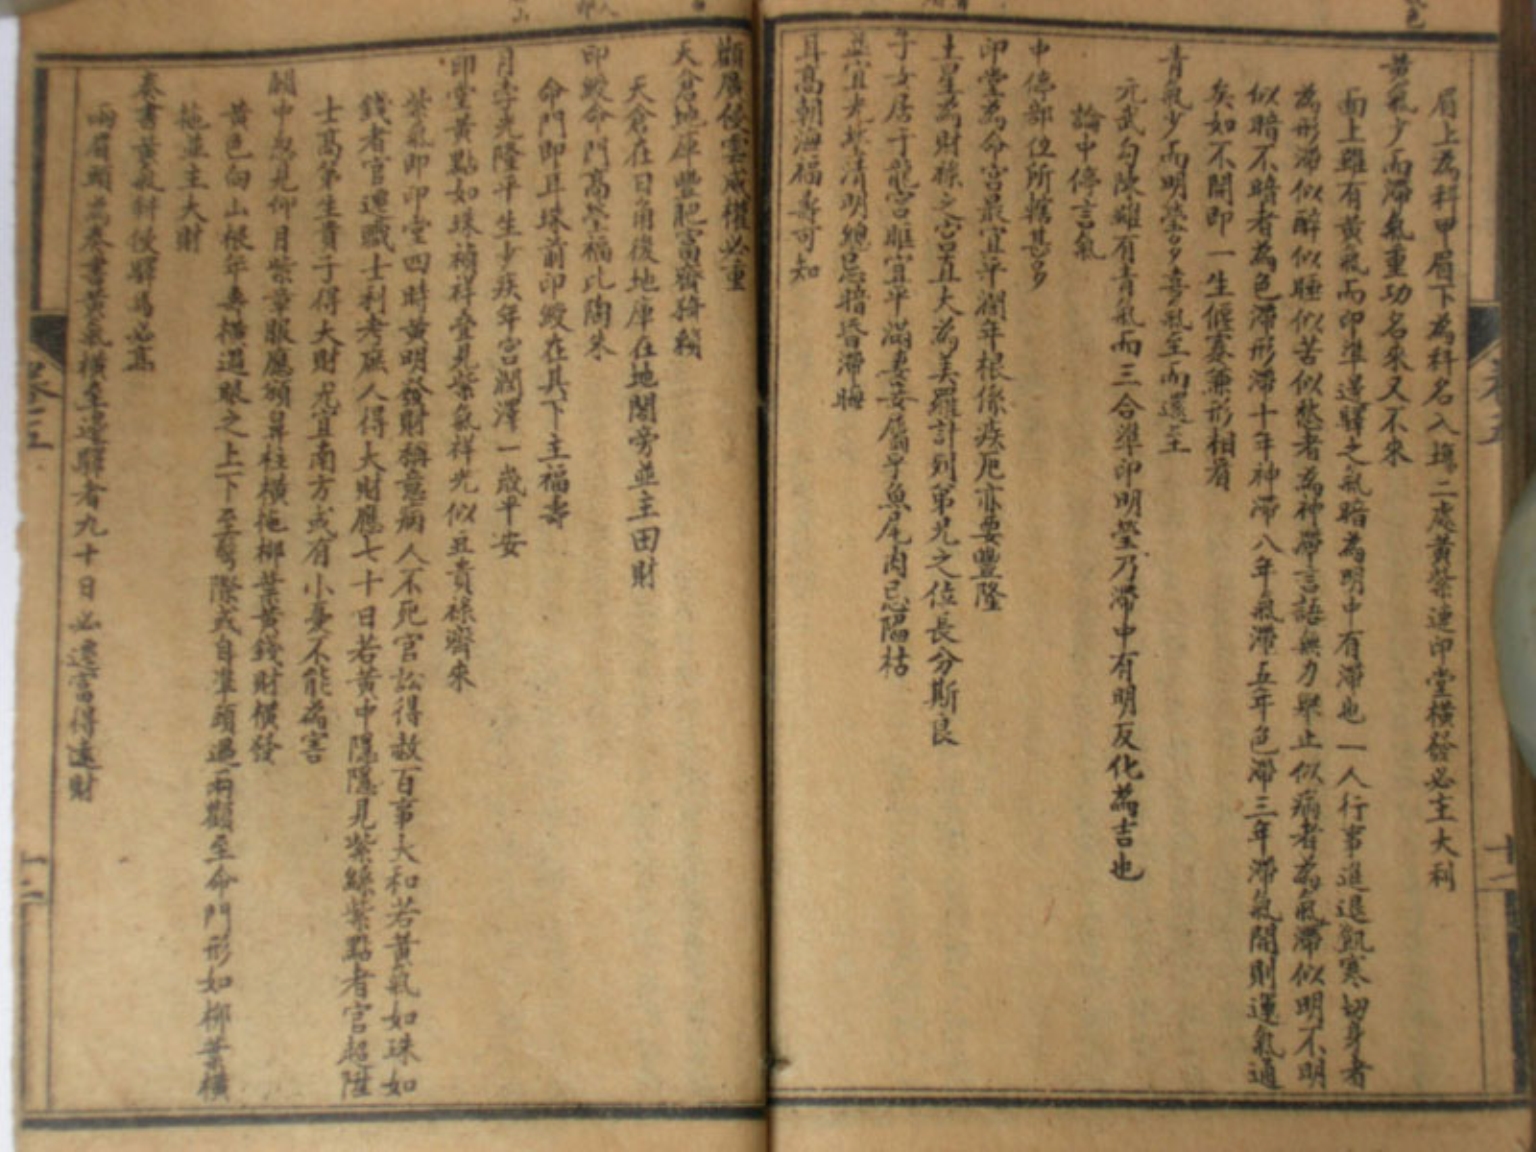 眉上為科甲眉下為科名入塲二處黃紫連印堂橫發必主大利
黃氣少而滯氣重功名來又不來
面上雖有黃氣而印準邊驛之氣暗為明中有滯也一人行事進退飢寒切身者
為形滯似醉似睡似苦似愁者為神滯言語無力舉止似病者為氣滯似明不明
似暗不暗者為色滯形滯十年神滯八年氣滯五年色滯三年滯氣開則運氣通
矣如不開即一生偃蹇兼形相看
青氣少而明瑩多喜氣至而還主
元武勾陳雖有青氣而三合準印明瑩乃滯中有明反化為吉也
論中停言氣
中停部位所轄甚多
印堂為命宮最宜平潤年根係疾厄亦要豐隆
土星為財祿之宮直大為美羅計列弟兄之位長分斯良
子女居于龍宮雖宜平滿妻妾屬乎魚尾肉忌陷枯
並宜光紫清明總忌惜昏滯晦
耳高朝海福壽可知
顴展侵雲威權必重
天倉地庫豐肥富齊猗頓
天倉在日角後地庫在地閣旁並主田財
印綬命門高瑩福比陶朱
命門即耳珠前印綬在其下主福壽
月孛光隆平生少疾年宮潤澤一歲平安
印堂黃點如珠禎祥疊見紫氣祥光似豆貴祿齊來
紫氣即印堂四時黃明發財稱意病人不死官訟得赦百事大和若黃氣如珠如
錢者官運職士利考庶人得大財應七十日若黃中隱隱見紫絲紫點者官超陞
士高第生貴子得大財尤宜南方或有小憂不能為害
顴中忽見仰月紫章服應頒昇柱橫拖柳葉黃錢財橫發
黃色向山根年壽橫過眼之上下至鬢際或自準頭過兩顴至命門形如柳葉橫
拖並主大財
奏書黃氣斜侵驛馬必高
兩眉頭為奏書黃氣橫至邊驛者九十日必遷官得遠財
卷五
十一
卷五
十二